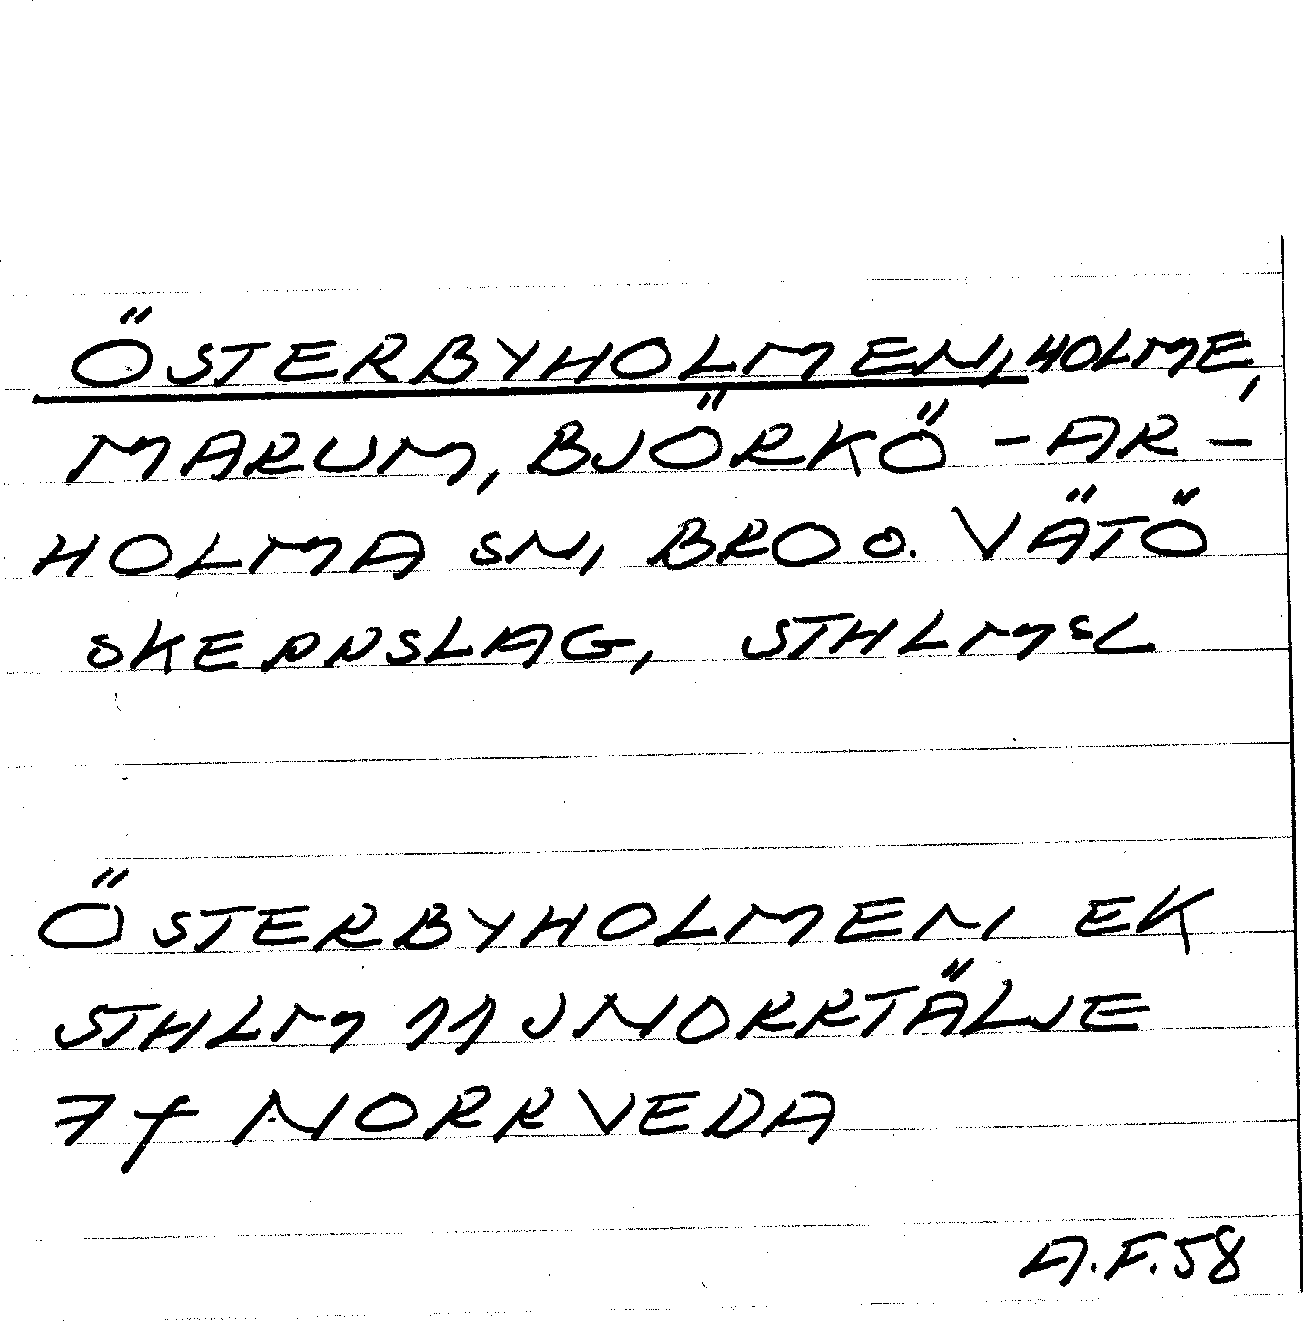 ÖSTERBYHOLMEN, HOLME,
MARUM, BJÖRKÖ-AR-
HOLMA SN, BRO O. VÄTÖ
SKEPPSLAG, STHLMSL
ÖSTERBYHOLMEN EK
STHLM 11J NORRTÄLJE
7f NORRVEDA
A.F.58